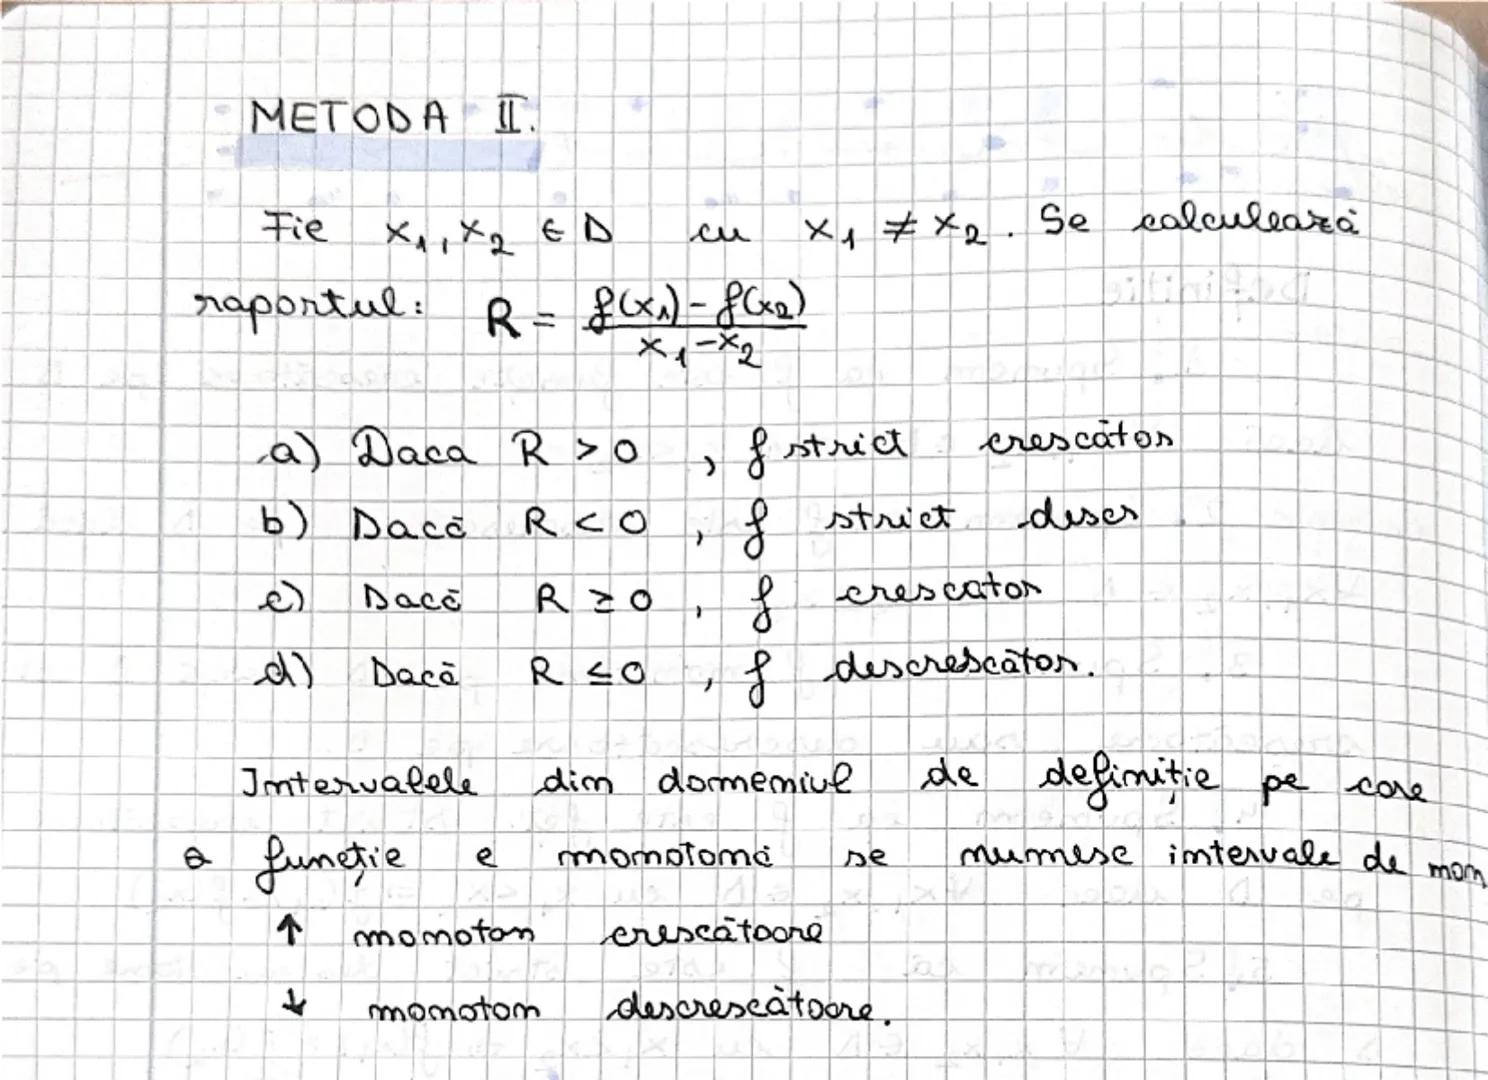 METODA II.
Fie x₁, x₂ ∈ D cu x₁ ≠ x₂. Se calculează
raportul: R = f(x₁) - f(x₂) / x₁ - x₂
a) Daca R > 0 , f strict crescător
b) Dacă R < 0 , f strict descr.
c) Dacă R ≥ 0 , f crescator
d) Dacă R ≤ 0 , f descrescător.
Intervalele din domeniul de definiție pe care
o funcție e monotonă se numesc intervale de mon
↑ monoton crescătoare
↓ monoton descrescătoare.